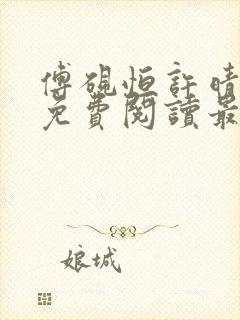 傅硯恒許晴
免費閱讀最
娘城